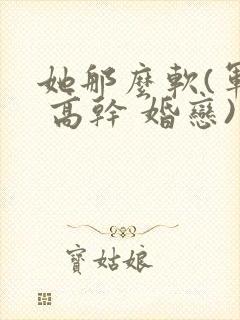 她那麼軟(軍
高幹 婚戀)
寶姑娘